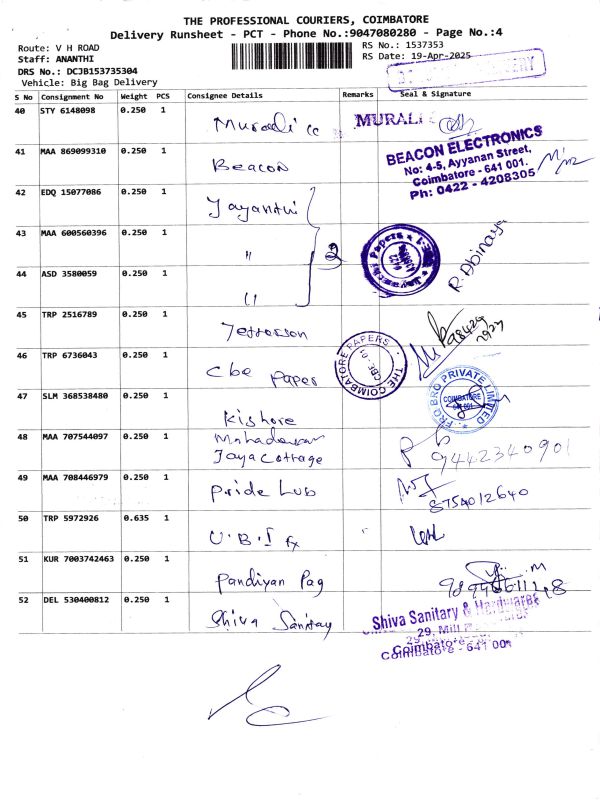 THE PROFESSIONAL COURIERS, COIMBATORE
Delivery Runsheet - PCT - Phone No.:9047080280 - Page No.:4
Route: V H ROAD
RS No.: 1537353
Staff: ANANTHI
RS Date: 19-Apr-2025
DRS No.: DCJB153735304
Vehicle: Big Bag Delivery
S No Consignment No Weight PCS Consignee Details Remarks Seal & Signature
40 STY 6148098 0.250 1 Murali cc MURALI
41 MAA 869099310 0.250 1 Beacon
BEACON ELECTRONICS
No: 4-5, Ayyanan Street,
Coimbatore - 641 001.
Ph: 0422 - 4208305
42 EDQ 15077086 0.250 1 Jayanthi
43 MAA 600560396 0.250 1 "
3
R. Abinaya
44 ASD 3580059 0.250 1 "
45 TRP 2516789 0.250 1
46 TRP 6736043 0.250 1 Cbe Paper
THE COIMBATORE PAPERS
CBE-01
47 SLM 368538480 0.250 1 Kishore
FRO BRO PRIVATE LIMITED
COIMBATORE
641 001
48 MAA 707544097 0.250 1
Jaya Cottage
9442340901
49 MAA 708446979 0.250 1 Pride Lub
8754012640
50 TRP 5972926 0.635 1 U.B.I
51 KUR 7003742463 0.250 1 Pandiyan Pag
52 DEL 530400812 0.250 1 Shiva Sanitay
Shiva Sanitary & Hardwares
29, Mill
Coimbatore - 641 001